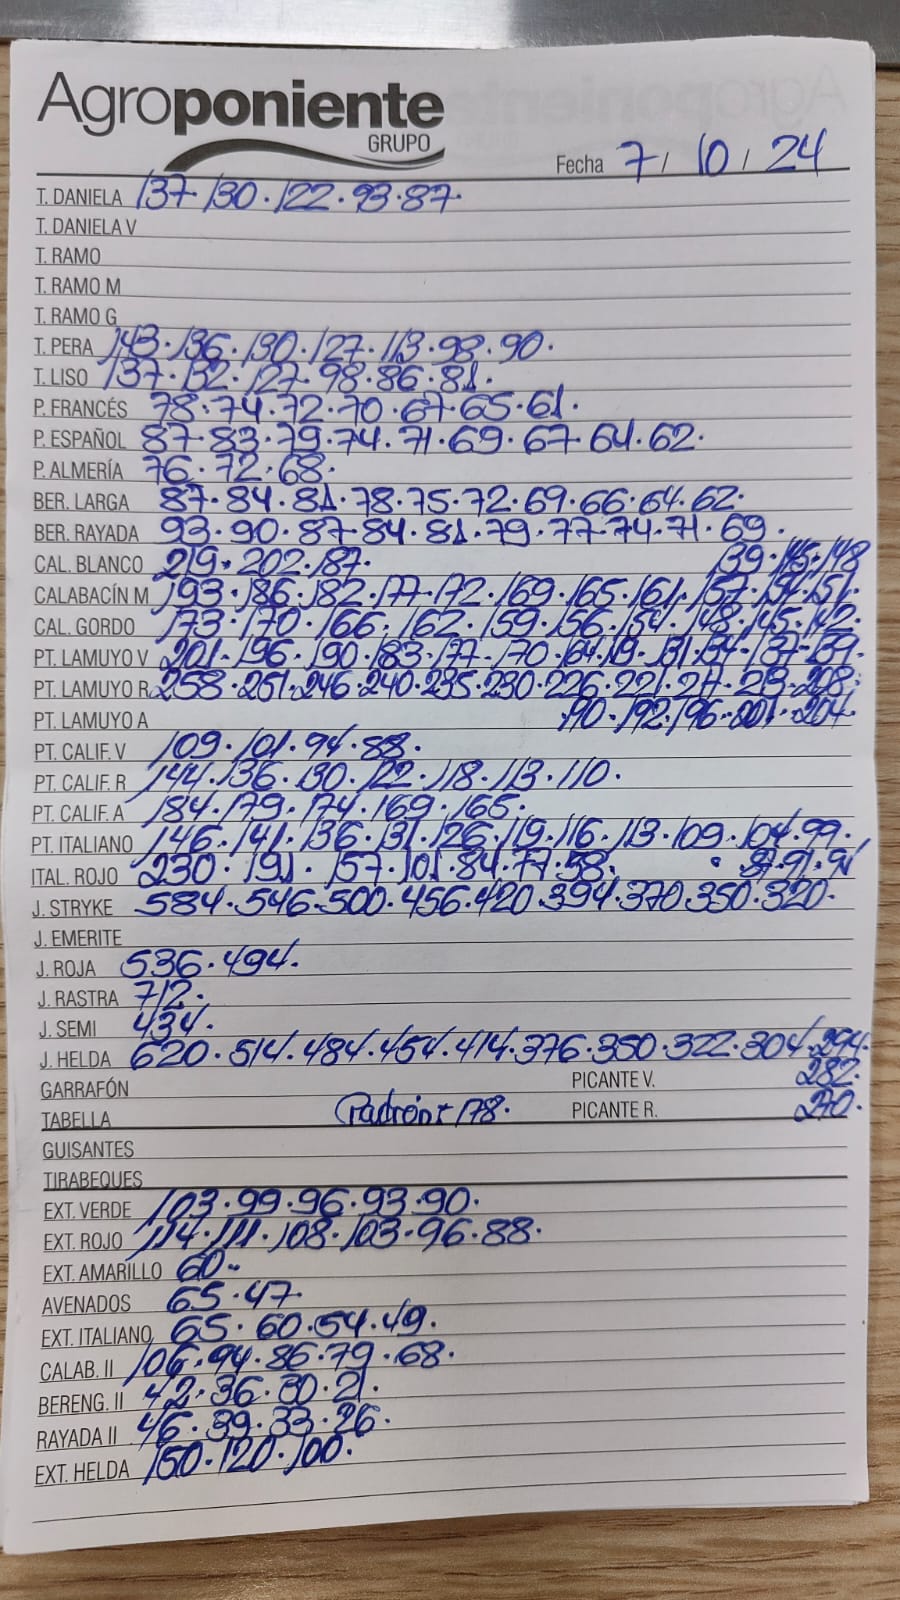 Agroponiente
GRUPO
Fecha 7 / 10 / 24
T. DANELA 137. 130. 122. 93. 87.
T. DANIELA V
T. RAMO
T. RAMO M
T. RAMO G
T. PERA 143. 136. 130. 127. 113. 98. 90.
T. LISO 137. 132. 127. 98. 86. 81.
P. FRANCÉS 78. 74. 72. 70. 67. 65. 61.
P. ESPAÑOL 87. 83. 79. 74. 71. 69. 67. 64. 62.
P. ALMERÍA 76. 72. 68.
BER. LARGA 87. 84. 81. 78. 75. 72. 69. 66. 64. 62.
BER. RAYADA 93. 90. 87. 84. 81. 79. 77. 74. 71. 69.
CAL. BLANCO 219. 202. 187. 139. 145. 148
CALABACÍN M 193. 186. 182. 177. 172. 169. 165. 161. 157. 154. 151.
CAL. GORDO 173. 170. 166. 162. 159. 156. 154. 148. 145. 142.
PT. LAMUYO V 201. 196. 190. 183. 177. 170. 164. 119. 131. 134. 137. 139.
PT. LAMUYO R 258. 251. 246. 240. 235. 230. 226. 221. 217. 213. 208.
PT. LAMUYO A 190. 192. 196. 201. 204.
PT. CALIF. V 109. 101. 94. 88.
PT. CALIF. R 144. 136. 130. 122. 118. 113. 110.
PT. CALIF. A 184. 179. 174. 169. 165.
PT. ITALIANO 146. 141. 136. 131. 126. 119. 116. 113. 109. 104. 99.
ITAL. ROJO 230. 191. 157. 101. 84. 77. 58. 91.
J. STRYKE 584. 546. 500. 456. 420. 394. 370. 350. 320.
J. EMERITE
J. ROJA 536. 494.
J. RASTRA 712.
J. SEMI 434.
J. HELDA 620. 514. 484. 454. 414. 376. 350. 322. 304. 294.
GARRAFÓN PICANTE V. 282.
TABELLA Padrón 178. PICANTE R. 270.
GUISANTES
TIRABEQUES
EXT. VERDE 103. 99. 96. 93. 90.
EXT. ROJO 114. 111. 108. 103. 96. 88.
EXT. AMARILLO 60.
AVENADOS 65. 47.
EXT. ITALIANO 65. 60. 54. 49.
CALAB. II 106. 94. 86. 79. 68.
BERENG. II 42. 36. 30. 21.
RAYADA II 46. 39. 33. 26.
EXT. HELDA 150. 120. 100.